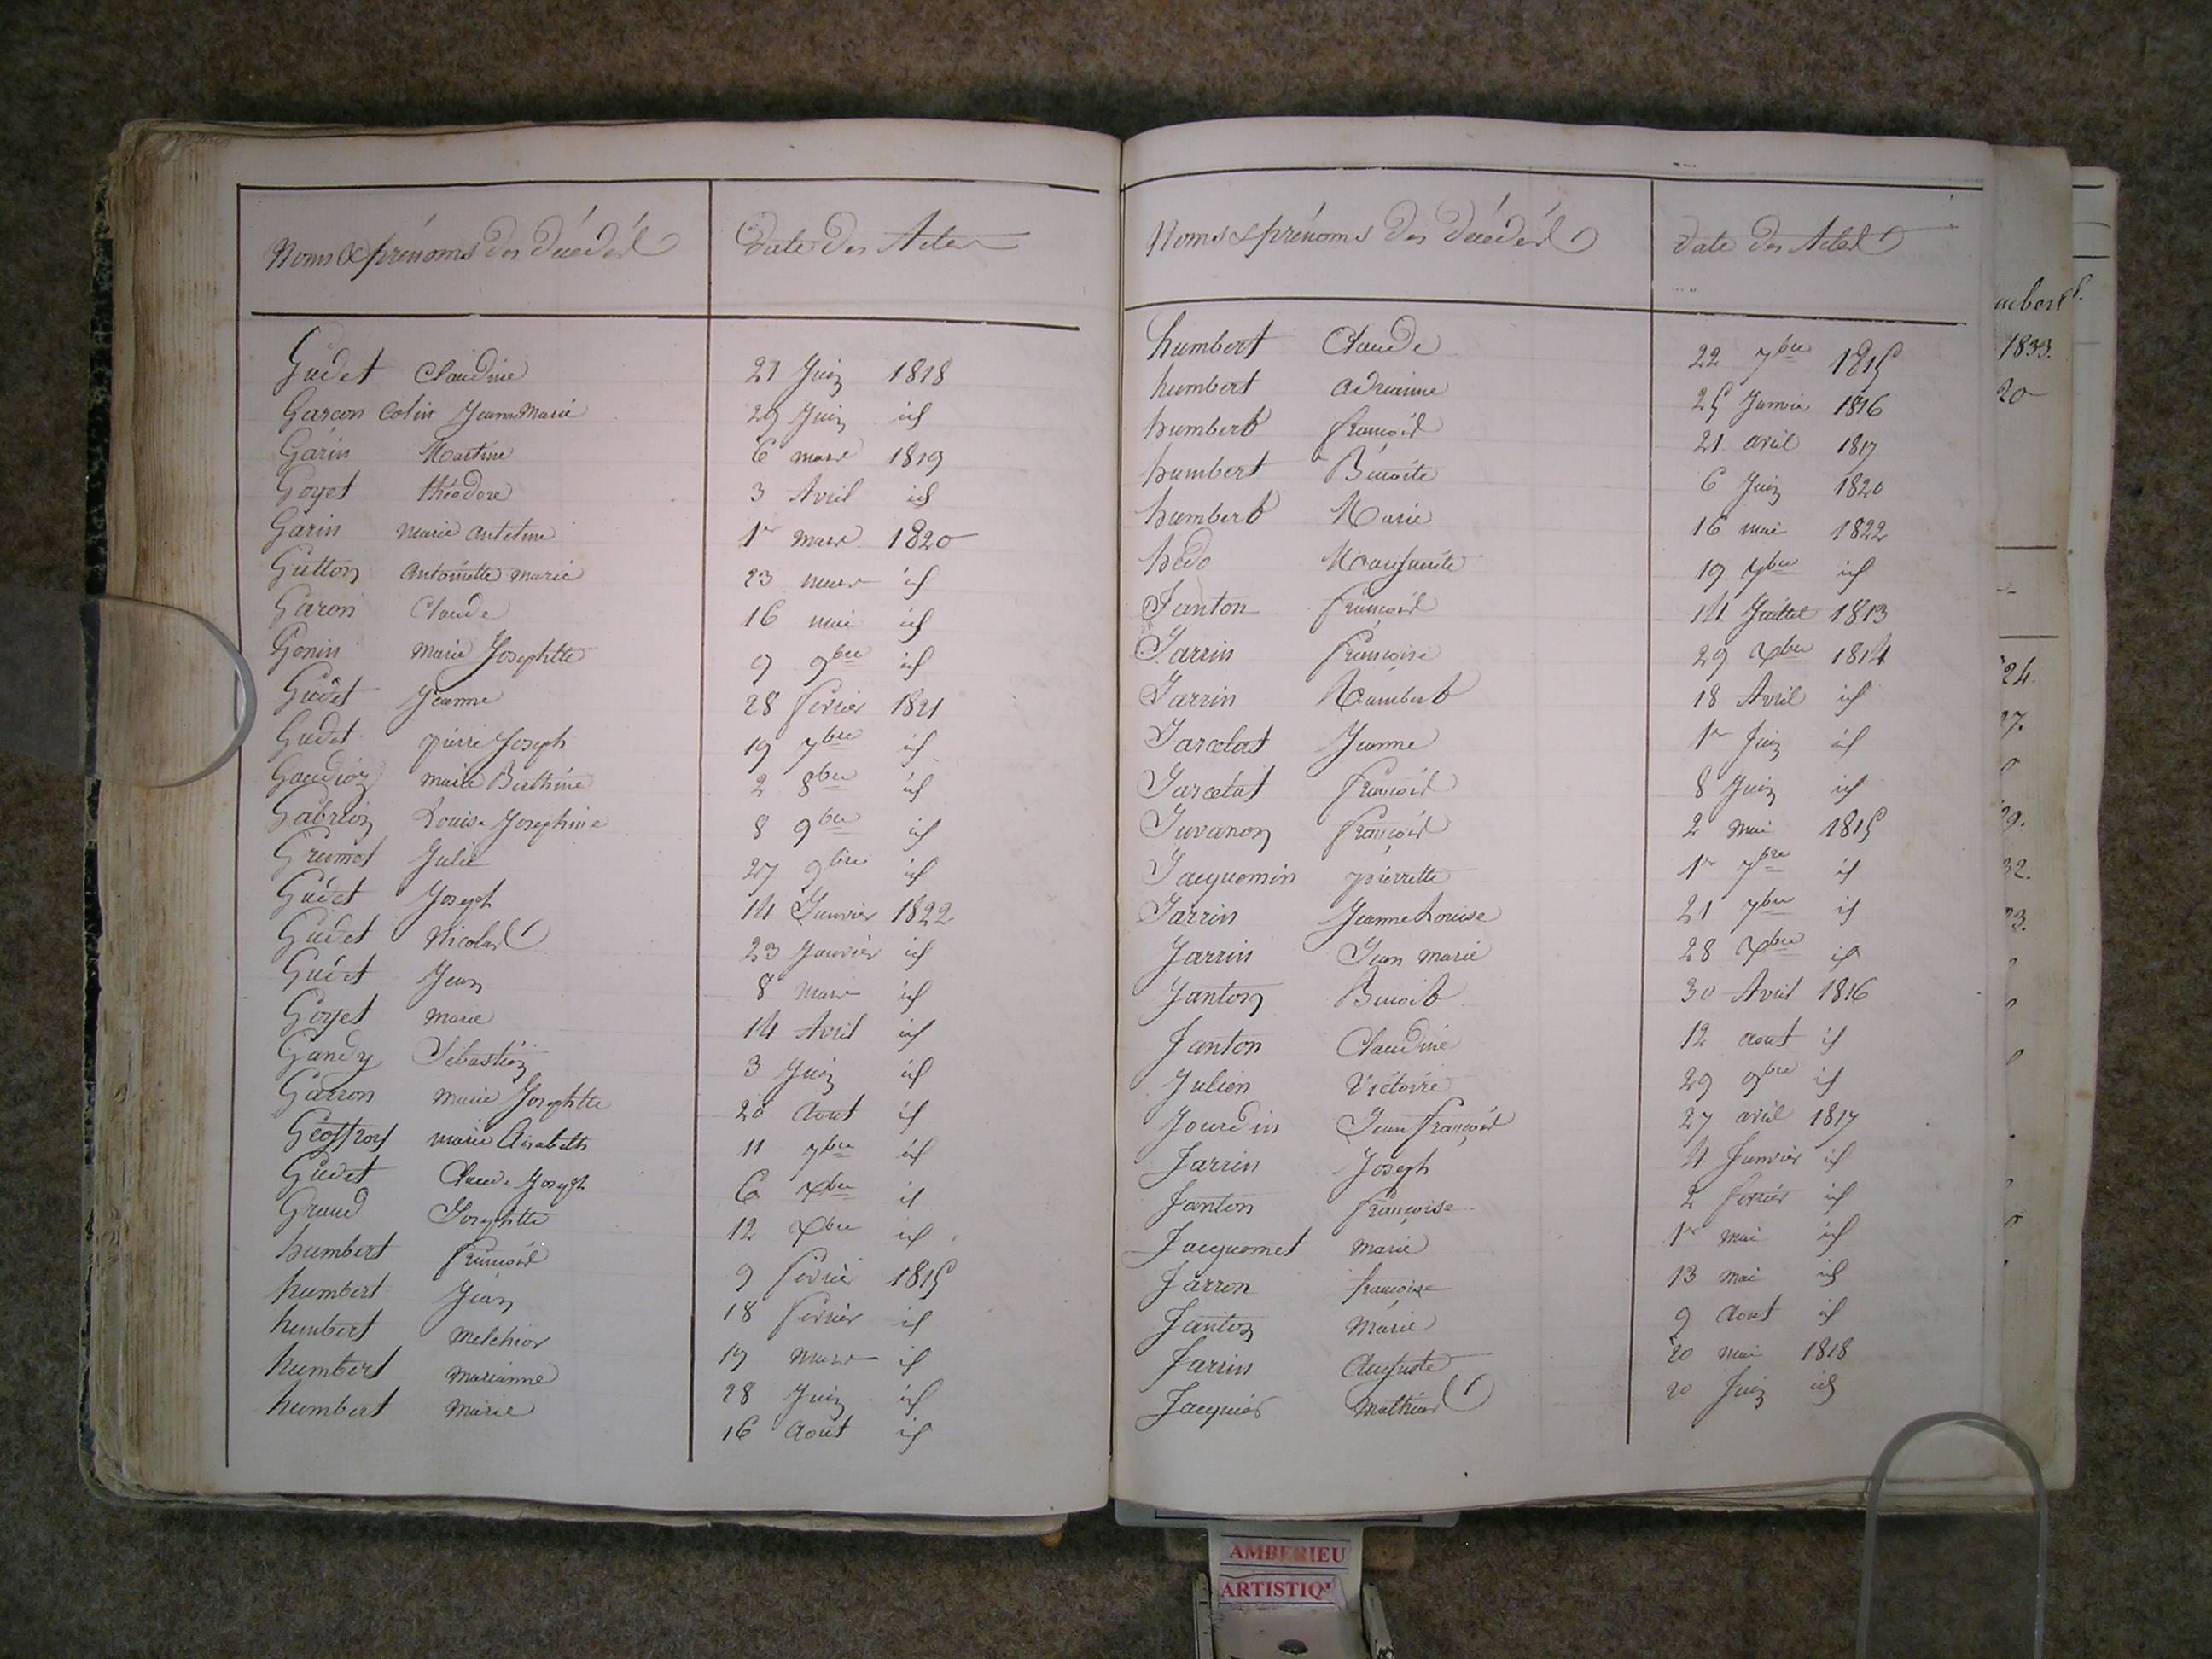 Noms & prénoms des décédés Date des Actes
Gudet Claudine 21 Juin 1818
Garcon Colin Jeanne Marie 29 Juin id
Garin Martine 6 mars 1819
Goyet théodore 3 Avril id
Garin Marie antetine 1er mars 1820
Gutton antoinette marie 23 mars id
Garon Claude 16 mai id
Genin Marie Josephtte 9 9bre id
Gudet Jeanne 28 fevrier 1821
Gudet pierre Joseph 19 7bre id
Gaudion marie Berthine 2 8bre id
Gabrion Louise Josephine 8 9bre id
Julie 27 9bre id
Gudet Joseph 14 Janvier 1822
Gudet Nicolas 23 Janvier id
Gudet Jean 8 Mars id
Goyet Marie 14 Avril id
Gandy Sébastien 3 Juin id
Garron Marie Josephtte 20 Aout id
Geoffroy marie Elisabeth 11 7bre id
Gudet Claude Joseph 6 Xbre id
Graud Josephtte 12 Xbre id
humbert francois 9 fevrier 1815
humbert Jean 18 fevrier id
humbert Melchior 19 Mars id
humbert Marianne 28 Juin id
humbert Marie 16 Aout id
Noms & prénoms des décédés Date des Actes
humbert Claude 22 7bre 1815
humbert adrianne 25 Janvier 1816
humbert francois 21 avril 1817
humbert Benoite 6 Juin 1820
humbert Marie 16 mai 1822
hedo Marguerite 19 7bre id
Janton francois 14 Juillet 1813
Jarrin francoise 29 Xbre 1814
Jarrin Rambert 18 Avril id
Jarcelat Jeanne 1er Juin id
Jarcelat francois 8 Juin id
Juvanon francois 2 Mai 1815
Jacquemin pierrette 1er 7bre id
Jarrin Jeanne Louise 21 7bre id
Jarrin Jean marie 28 Xbre id
Janton Benoit 30 Avril 1816
Janton Claudine 12 aout id
Julien Victoire 29 9bre id
Jourdin Jean françois 27 avril 1817
Jarrin Joseph 4 Janvier id
Janton françoise 2 fevrier id
Jacquemet Marie 1er mai id
Jarron françoise 13 mai id
Janton Marie 9 Aout id
Jarrin Auguste 20 mai 1818
Jacquier Mathieu 20 Juin id
1833.
20
24.
27.
29.
32.
AMBERIEU
ARTISTIQ